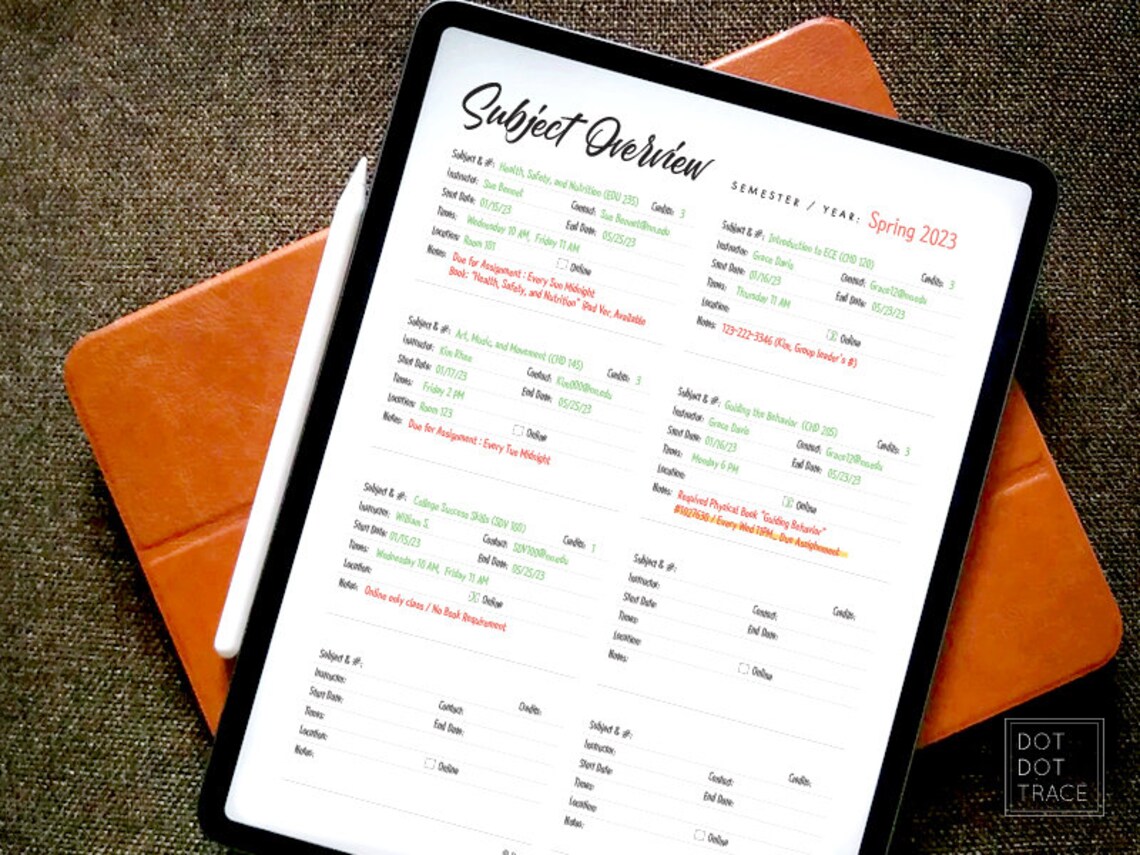 Subject Overview
SEMESTER / YEAR: Spring 2023
Subject & #: Health, Safety, and Nutrition (EDU 235)
Instructor: Sue Bennet Credits: 3
Start Date: 01/15/23 Contact: Sue Bennet@nn.edu
Times: Wednesday 10 AM, Friday 11 AM End Date: 05/25/23
Location: Room 101
Online
Notes: Due for Assignment : Every Sun Midnight
Book: "Health, Safety, and Nutrition" iPad Ver. Available
Subject & #: Introduction to ECE (CHD 120)
Instructor: Grace Davis Credits: 3
Start Date: 01/16/23 Contact: Grace12@nn.edu
Times: Thursday 11 AM End Date: 05/23/23
Location:
Online
Notes: 123-222-3346 (Kim, Group leader's #)
Subject & #: Art, Music, and Movement (CHD 145)
Instructor: Kim Rhee Credits: 3
Start Date: 01/17/23 Contact:
Times: Friday 2 PM End Date: 05/25/23
Location: Room 123
Online
Notes: Due for Assignment : Every Tue Midnight
Subject & #: Guiding the Behavior (CHD 205)
Instructor: Grace Davis Credits: 3
Start Date: 01/16/23 Contact: Grace12@nn.edu
Times: Monday 6 PM End Date: 05/23/23
Location:
Online
Notes: Required Physical Book "Guiding Behavior"
#1027630 / Every Wed 11PM... Due Assignment
Subject & #: College Success Skills (SDV 100)
Instructor: William S. Credits: 1
Start Date: 01/15/23 Contact: SDV100@nn.edu
Times: Wednesday 10 AM, Friday 11 AM End Date: 05/25/23
Location:
Online
Notes: Online only class / No Book Requirement
Subject & #:
Instructor:
Start Date: Contact: Credits:
Times: End Date:
Location:
Online
Notes:
Subject & #:
Instructor:
Start Date: Contact: Credits:
Times: End Date:
Location:
Online
Notes:
Subject & #:
Instructor:
Start Date: Contact: Credits:
Times: End Date:
Location:
Online
Notes:
DOT
DOT
TRACE